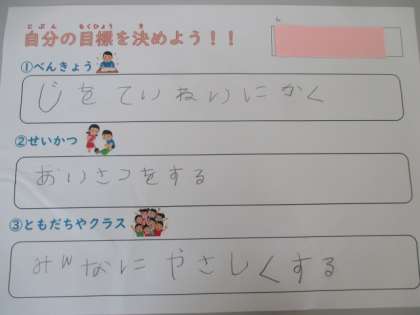 自分の目標を決めよう!!
①べんきょう
じをていねいにかく
②せいかつ
あいさつをする
③ともだちやクラス
みんなにやさしくする